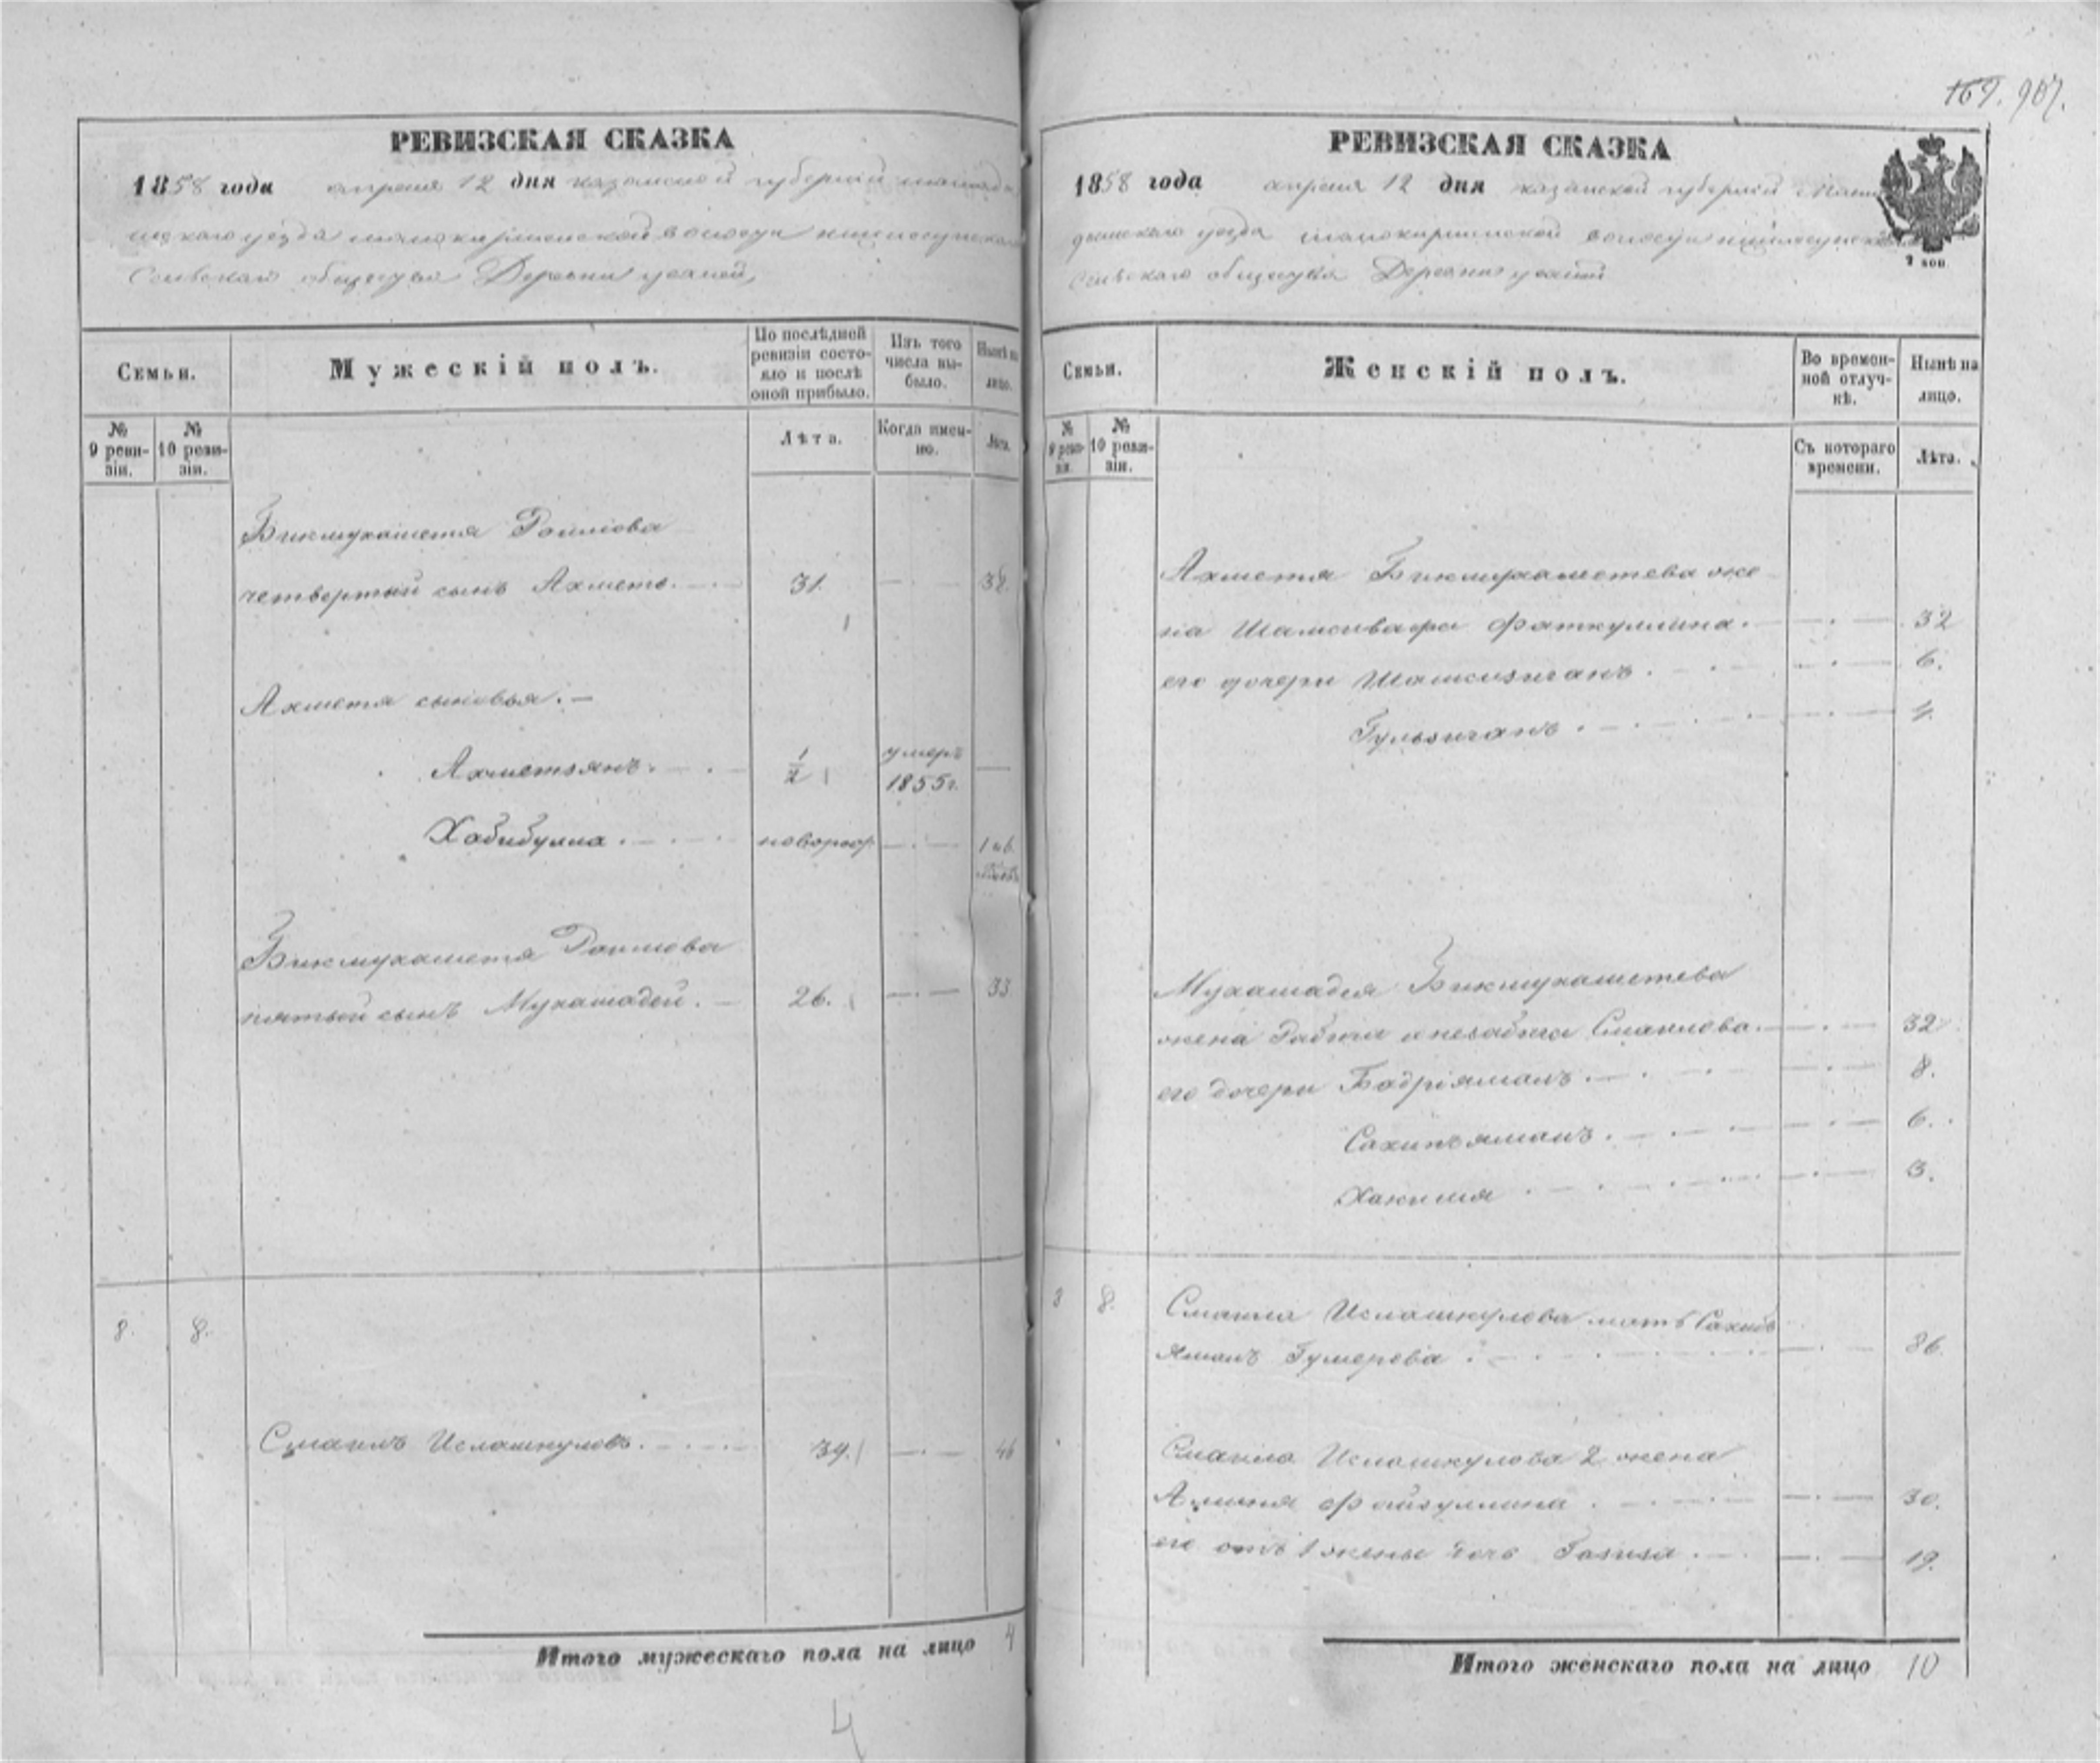 РЕВИЗСКАЯ СКАЗКА
1858 года апреля 12 дня казанской губернии мамады
шскаго уезда волости
Сельскаго общества Деревни
Семьи.
Мужескій полъ.
По послѣдней ревизіи состояло и послѣ оной прибыло.
Изъ того числа выбыло.
Нынѣ на лицо.
№ 9 ревизіи.
№ 10 ревизіи.
Лѣта.
Когда именно.
Лѣта.
Бикмухаметя
четвертый сынъ Ахметъ. 31. 38.
Ахметя сыновья.
Ахметзянъ. 1/2 умеръ 1855г.
Хабибулла. новорож.
Бикмухаметя
пятый сынъ Мухамадей. 26. 33
8. 8.
Смаилъ Исламкуловъ. 39. 46
Итого мужескаго пола на лицо 4
4
169. 907.
РЕВИЗСКАЯ СКАЗКА
1858 года апреля 12 дня казанской губерніи Мама
дышскаго уезда волости
Сельскаго общества Деревни
2 коп.
Семьи.
Женскій полъ.
Во временной отлучкѣ.
Нынѣ на лицо.
№ 9 ревизіи.
№ 10 ревизіи.
Съ котораго времени.
Лѣта.
Ахметя Бикмухаметева же
на Фаткуллина. 32
его дочери 6.
4.
Мухамадея Бикмухаметева
жена Смаилова. 32
его дочери Бадріямалъ. 8.
Сахипъямалъ. 6.
Хакимя 3.
8.
Смаила Исламкулова мать Сахибъ
ямалъ Гумерова 86.
Смаила Исламкулова 2 жена
Файзуллина. 30.
его отъ 1 жены дочь Газиза. 19.
Итого женскаго пола на лицо 10